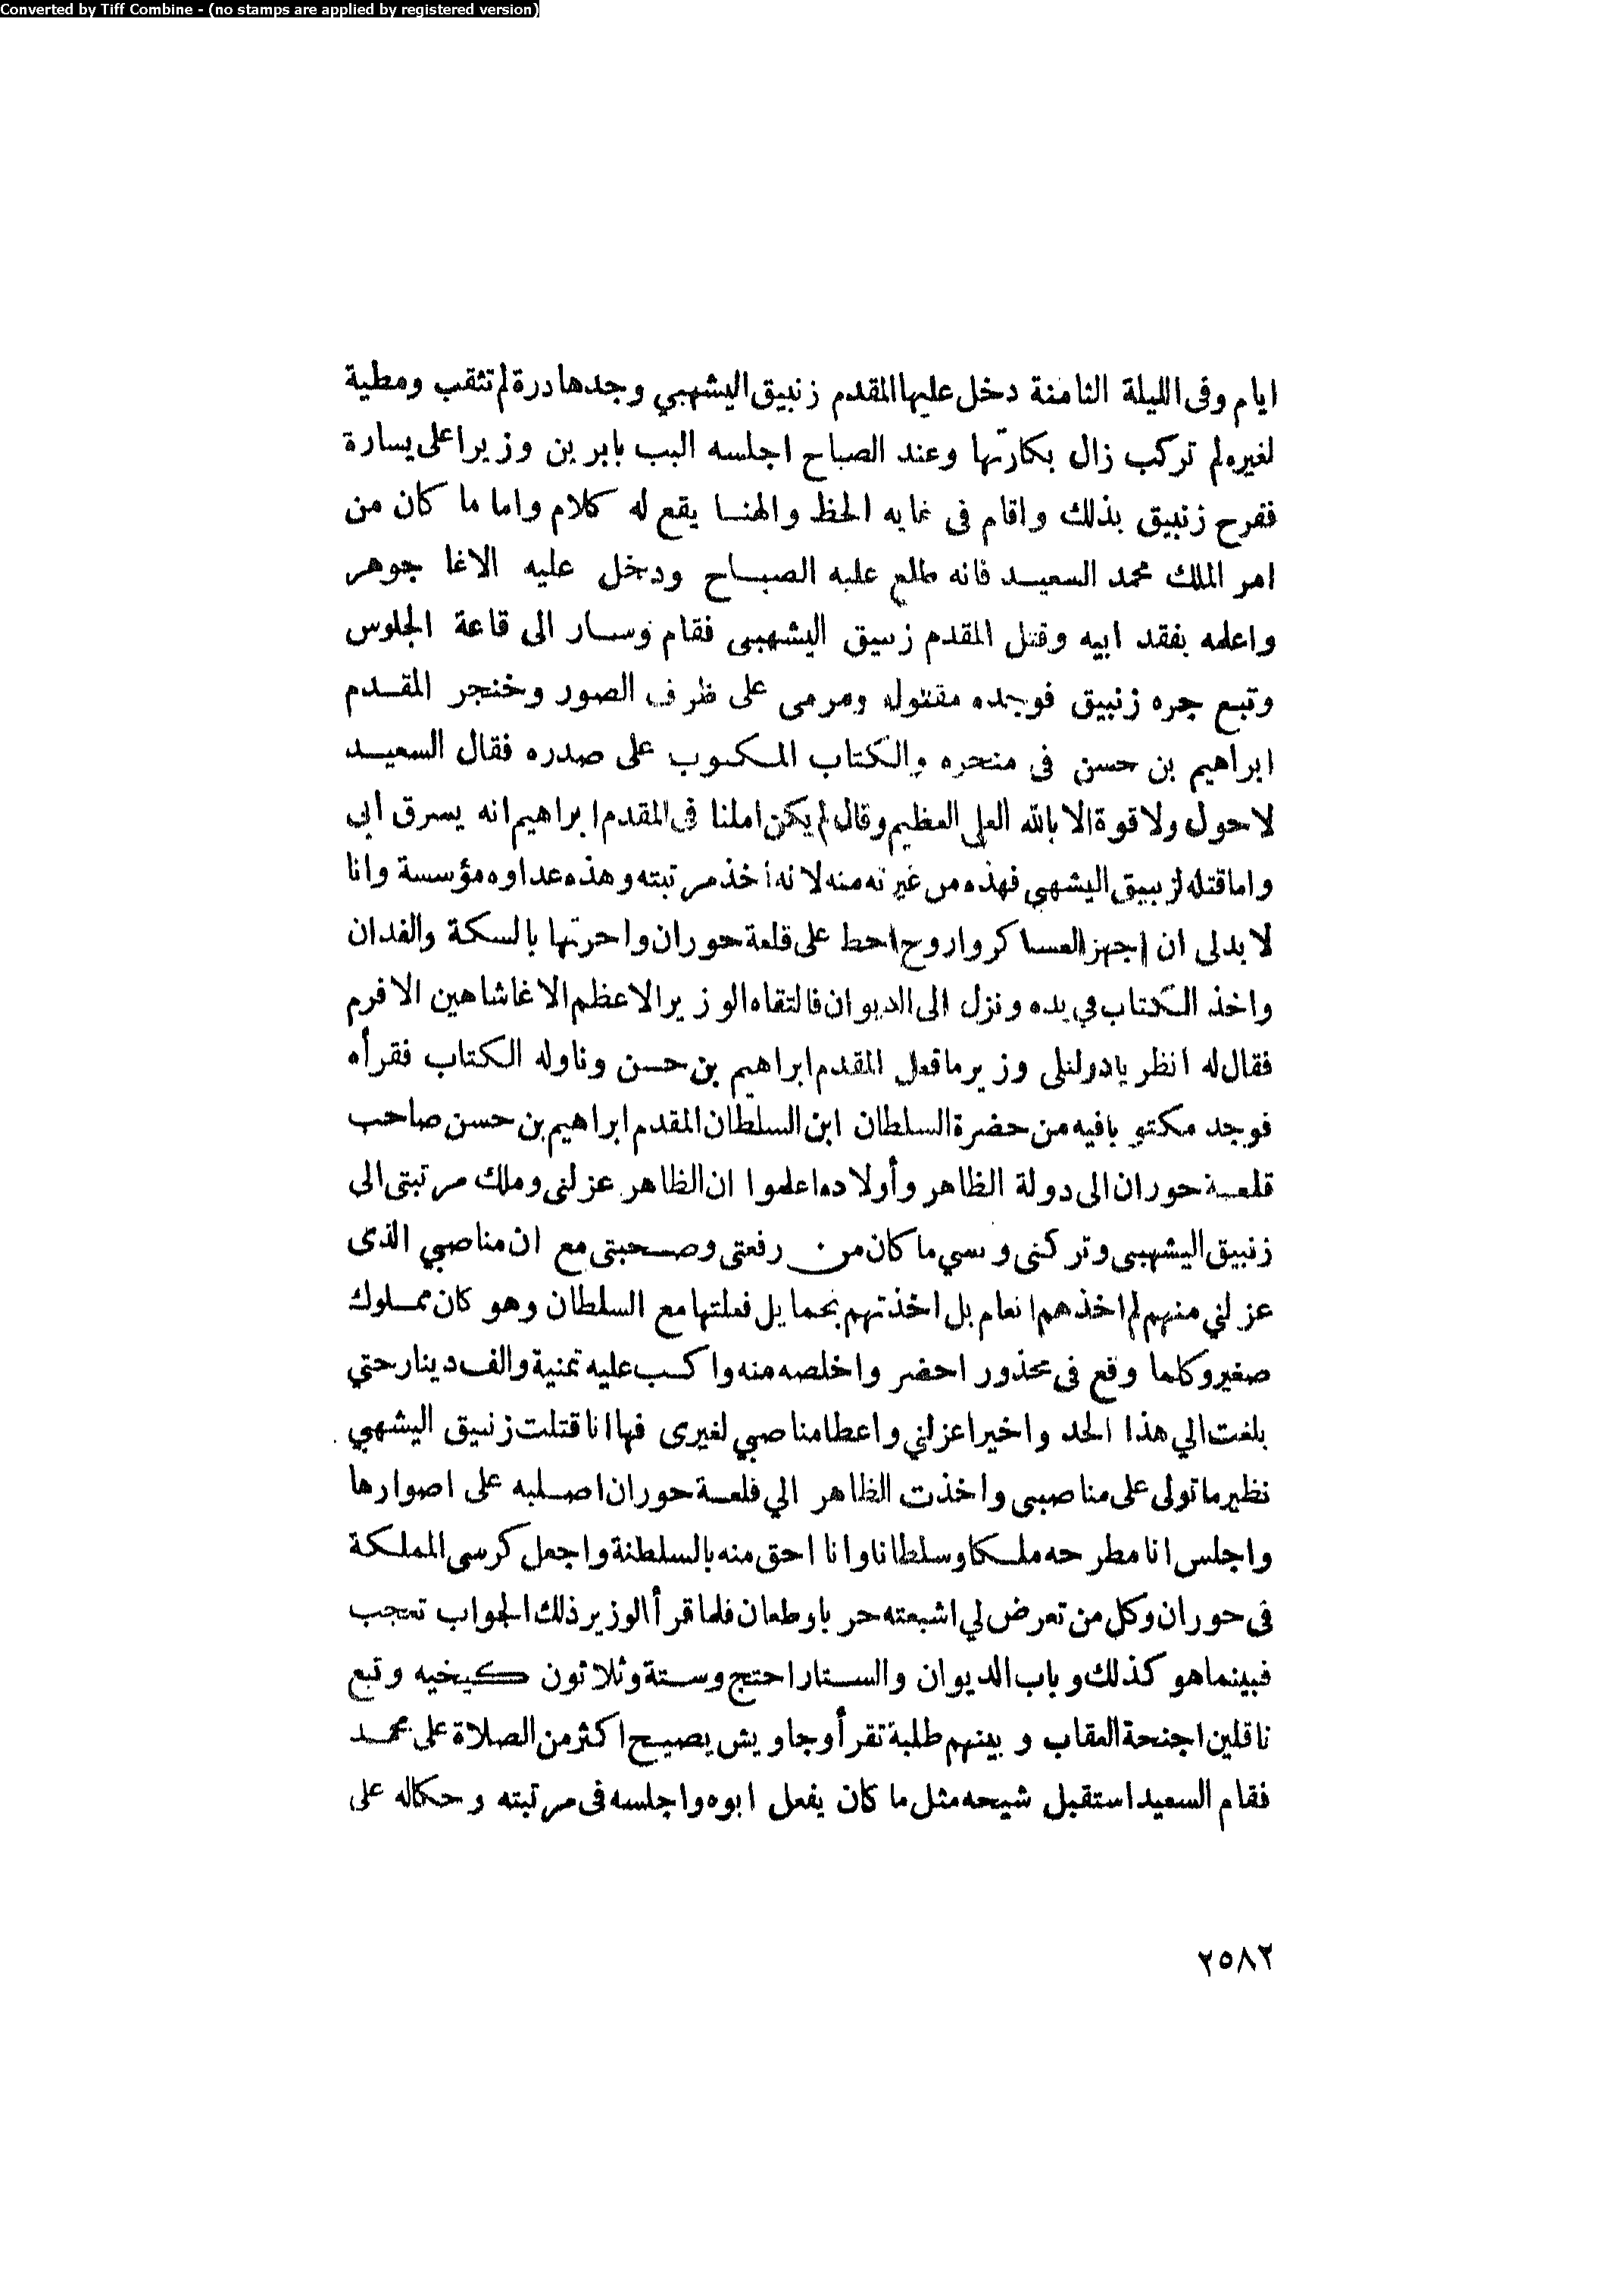 Converted by Tiff Combine - (no stamps are applied by registered version)
ايام وفى الليلة الثامنة دخل عليها المقدم زنبيق اليشهبي وجدها درة لم تثقب ومطية
لغيره لم تركب زال بكارتها وعند الصباح اجلسه البب بابرين وزيرا على يسارة
ففرح زنبيق بذلك واقام فى غايه الحظ والهنا يقع له كلام واما ما كان من
امر الملك محمد السعيد فانه طلع علبه الصباح ودخل عليه الاغا جوهر
واعلمه بفقد ابيه وقتل المقدم زنبيق اليشهبى فقام وسار الى قاعة الجلوس
وتبع جره زنبيق فوجده مقتول ومرمى على ظرف الصور وخنجر المقدم
ابراهيم بن حسن فى منحره والكتاب المكتوب على صدره فقال السعيد
لا حول ولا قوة الا بالله العلى العظيم وقال لم يكن املنا فى المقدم ابراهيم انه يسرق أبى
واما قتله لزنبيق اليشهبي فهذه من غيرته منه لانه أخذ مرتبته وهذه عداوه مؤسسة وانا
لا بد لى ان اجهز العساكر واروح احط على قلعة حوران واحرتها بالسكة والفدان
واخذ الكتاب في يده ونزل الى الديوان فالتقاه الوزير الاعظم الاغا شاهين الافرم
فقال له انظر يا دولتلى وزير ما فعل المقدم ابراهيم بن حسن وناوله الكتاب فقرأه
فوجد مكتوبا فيه من حضرة السلطان ابن السلطان المقدم ابراهيم بن حسن صاحب
قلعة حوران الى دولة الظاهر وأولاده اعلموا ان الظاهر عزلنى وملك مرتبتى الى
زنبيق اليشهبى وتركنى ونسي ما كان من رفعتى وصحبتى مع ان مناصبي الذى
عزلني منهم لم اخذهم انعام بل اخذتهم بحمايل فعلتها مع السلطان وهو كان مملوك
صغير وكلما وقع فى محذور احضر واخلصه منه واكسب عليه تمنية والف دينار حتي
بلغت الي هذا الحد واخيرا عزلني واعطا مناصبي لغيرى فها انا قتلت زنبيق اليشهبي
نظير ما تولى على مناصبى واخذت الظاهر الي قلعة حوران اصلبه على اصوارها
واجلس انا مطرحه ملكا وسلطانا وانا احق منه بالسلطنة واجعل كرسى المملكة
فى حوران وكل من تعرض لي اشبعته حربا وطعان فلما قرأ الوزير ذلك الجواب تعجب
فبينما هو كذلك وباب الديوان والستار احتج وستة وثلاثون كيخيه وتبع
ناقلين اجنحة العقاب وبينهم طلبة تقرأ وجاويش يصيح اكثر من الصلاة على محمد
فقام السعيد استقبل شيحه مثل ما كان يفعل ابوه واجلسه فى مرتبته وحكاله على
٢٥٨٢